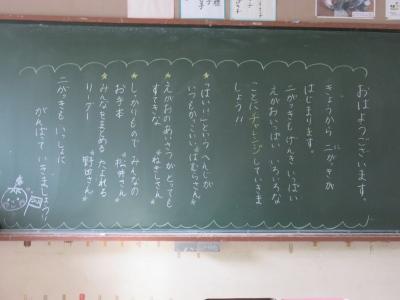 おはようございます。
きょうから 二がっきが
はじまります。
二がっきも げんき いっぱい
えがおいっぱい いろいろな
ことに チャレンジ していきま
しょう!!
★"はいっ!"という へんじが
いつも かっこいい "はむらさん"
★えがおの あいさつが とっても
すてきな "ねぎしさん"
★しっかりもので みんなの
お手本 "松井さん"
★みんなを まとめる たよれる
リーダー "野田さん"
二がっきも いっしょに
がんばって いきましょう